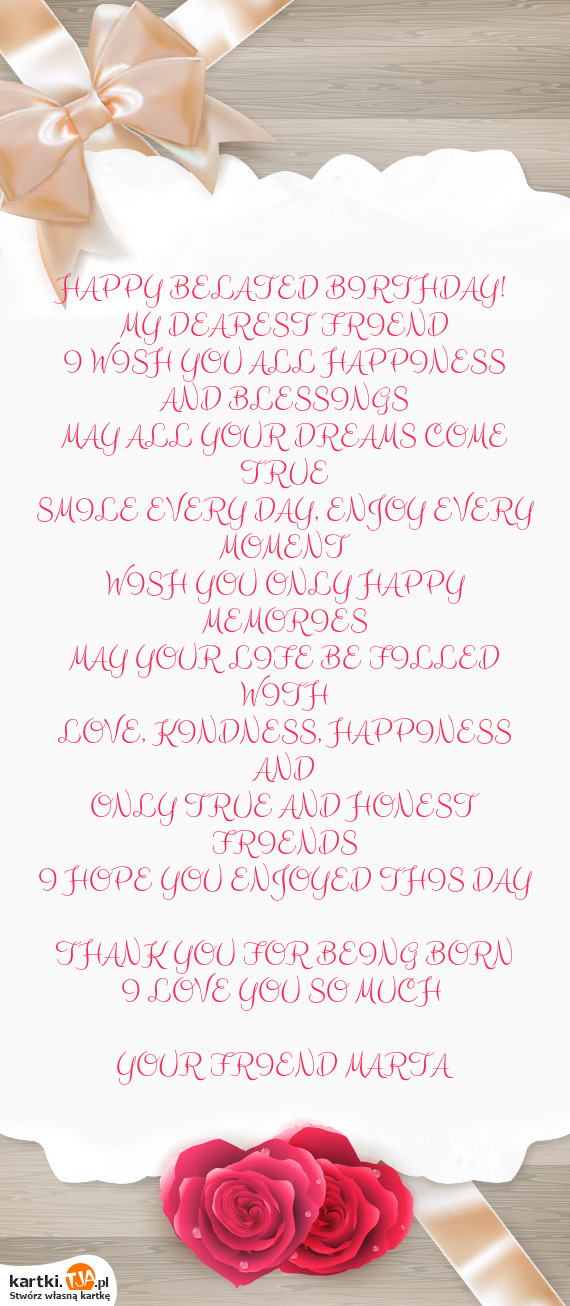 HAPPY BELATED BIRTHDAY!
MY DEAREST FRIEND
I WISH YOU ALL HAPPINESS
AND BLESSINGS
MAY ALL YOUR DREAMS COME
TRUE
SMILE EVERY DAY, ENJOY EVERY
MOMENT
WISH YOU ONLY HAPPY
MEMORIES
MAY YOUR LIFE BE FILLED
WITH
LOVE, KINDNESS, HAPPINESS
AND
ONLY TRUE AND HONEST
FRIENDS
I HOPE YOU ENJOYED THIS DAY
THANK YOU FOR BEING BORN
I LOVE YOU SO MUCH
YOUR FRIEND MARTA
kartki.TJA.pl
Stwórz własną kartkę